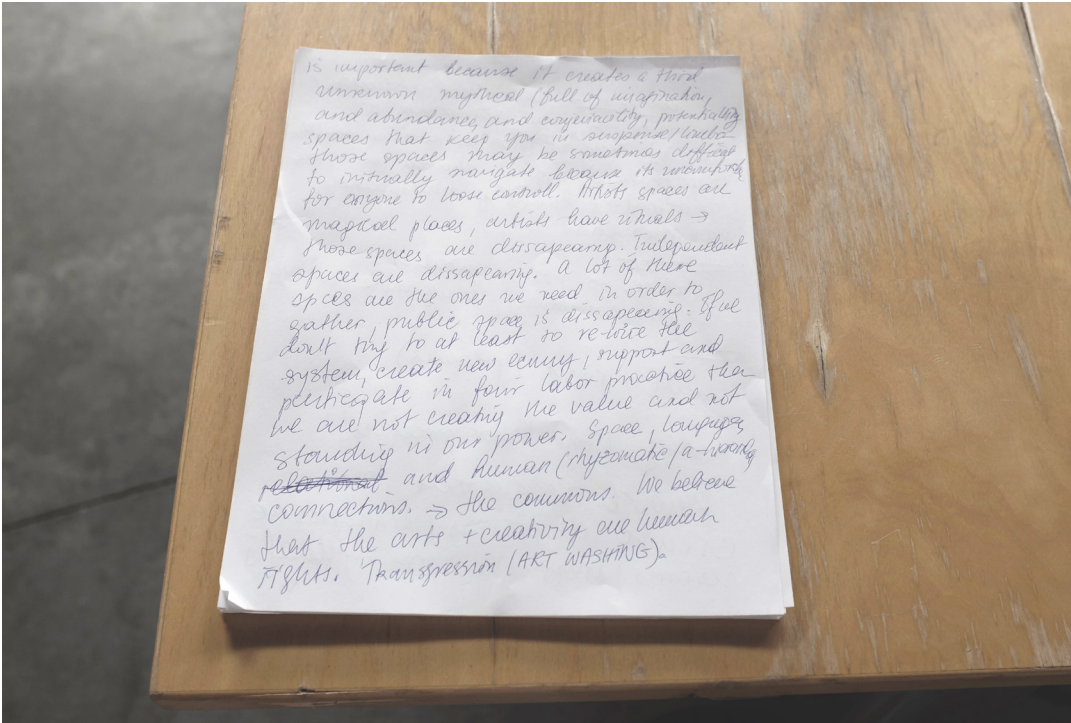 is important because it creates a third
unknown mythical (full of imagination,
and abundance, and conjviality, potentiality
spaces that keep you in suspense/limbo
those spaces may be sometimes difficult
to initially navigate because its uncomfortable
for everyone to loose controll. Artists spaces are
magical places, artists have rituals →
those spaces are dissapearing. Independent
spaces are dissapearing. A lot of these
spces are the ones we need in order to
gather, public space is dissapearing. If we
don't try to at least to re-wire the
system, create new , support and
participate in fair labor practice then
we are not creating the value and not
standing in our power. Space, languages,
relational and human (rhyzomatic/a-
connections. → the commons. We believe
that the arts + creativity are human
rights. Transgression (ART WASHING).